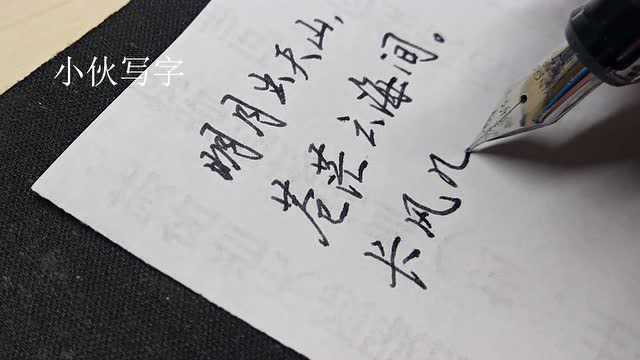 小伙写字
明月出天山，
苍茫云海间。
长风几